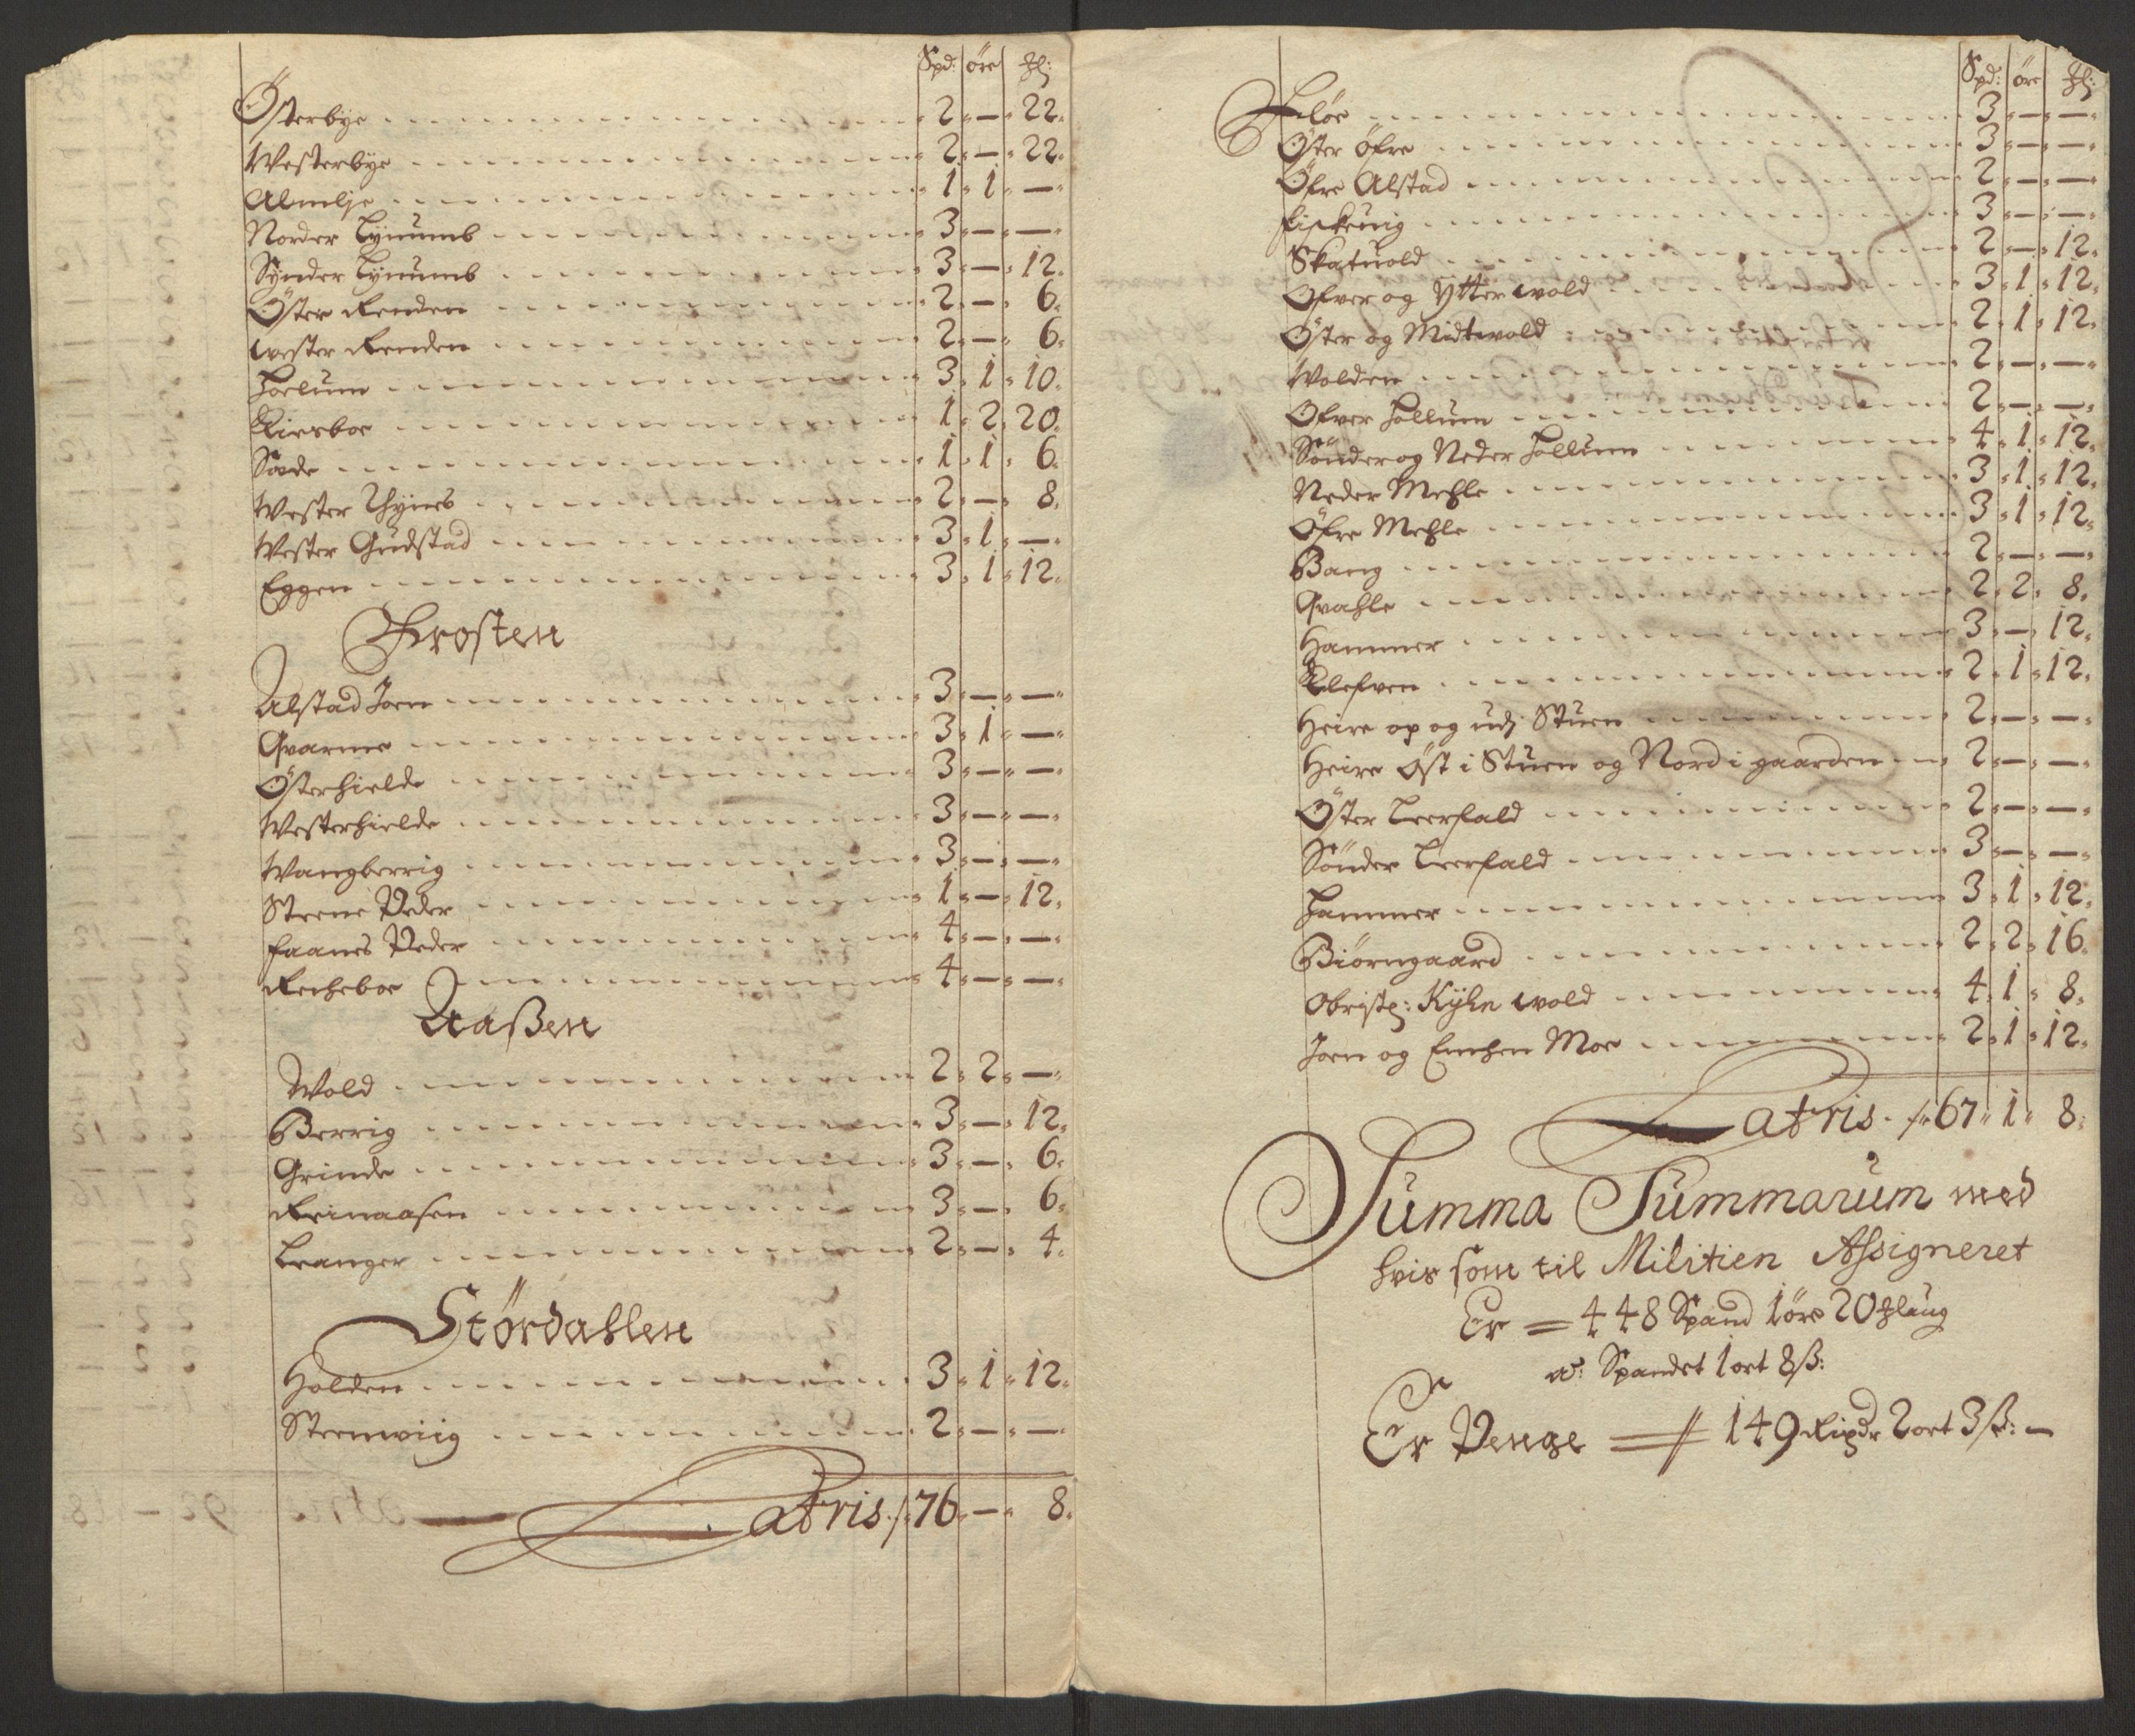 Spd: öre Ʒl:
Österbye 2 — 22
Westerbye 2 — 22
Almelje 1 1 —
Norder Lynumb 3 — —
Synder Lynumb 3 — 12
Öster Renden 2 — 6
wester Renden 2 — 6
Hoelum 3 1 10
Kiersboe 1 2 20
Sode 1 1 6
Wester Thynes 2 — 8
Wester Gudstad 3 1 —
Eggen 3 1 12
Frosten
Alstad Joen 3 — —
Qvarme 3 1 —
Österhielde 3 — —
Westerhielde 3 — —
Wangberrig 3 — —
Steene Peder 1 — 12
Faanes Peder 4 — —
Recheboe 4 — —
Aaßen
Wold 2 2 —
Berrig 3 — 12
Grinde 3 — 6
Reinaasen 3 — 6
Leanger 2 — 4
Stördahlen
Holden 3 1 12
Steenwiig 2 — —
Latris 76 — 8
Spd: öre Ʒl:
Fløe 3 — —
Öster Öfre 3 — —
Öfre Alstad 2 — —
Fiskewig 3 — —
Skatuold 2 — 12
Ofver og Ytter wold 3 1 12
Öster og Midtwold 2 1 12
Wolden 2 — —
Ofver Hollum 2 — —
Sönder og Neder Hollum 4 1 12
Neder Mehle 3 1 12
Öfre Mehle 3 1 12
Bang 2 — —
Qvahle 2 2 8
Hammer 3 — 12
Klefven 2 1 12
Heire op og udj Stuen 2 — —
Heire Öst i Stuen og Nord i gaarden 2 — —
Öster Leerfald 2 — —
Sönder Leerfald 3 — —
Hammer 3 1 12
Biörngaard 2 2 16
Obristl: Kyhn wold 4 1 8
Joen og Emhen Moe 2 1 12
Latris 67 1 8
Summa Summarum med
hvis som til Militien Assigneret
Er = 448 Spand 1 öre 20 Ʒlaug
a: Spandet 1 ort 8 ß:
Er Penge = 149 Rixdr 2 ort 3 ß: —